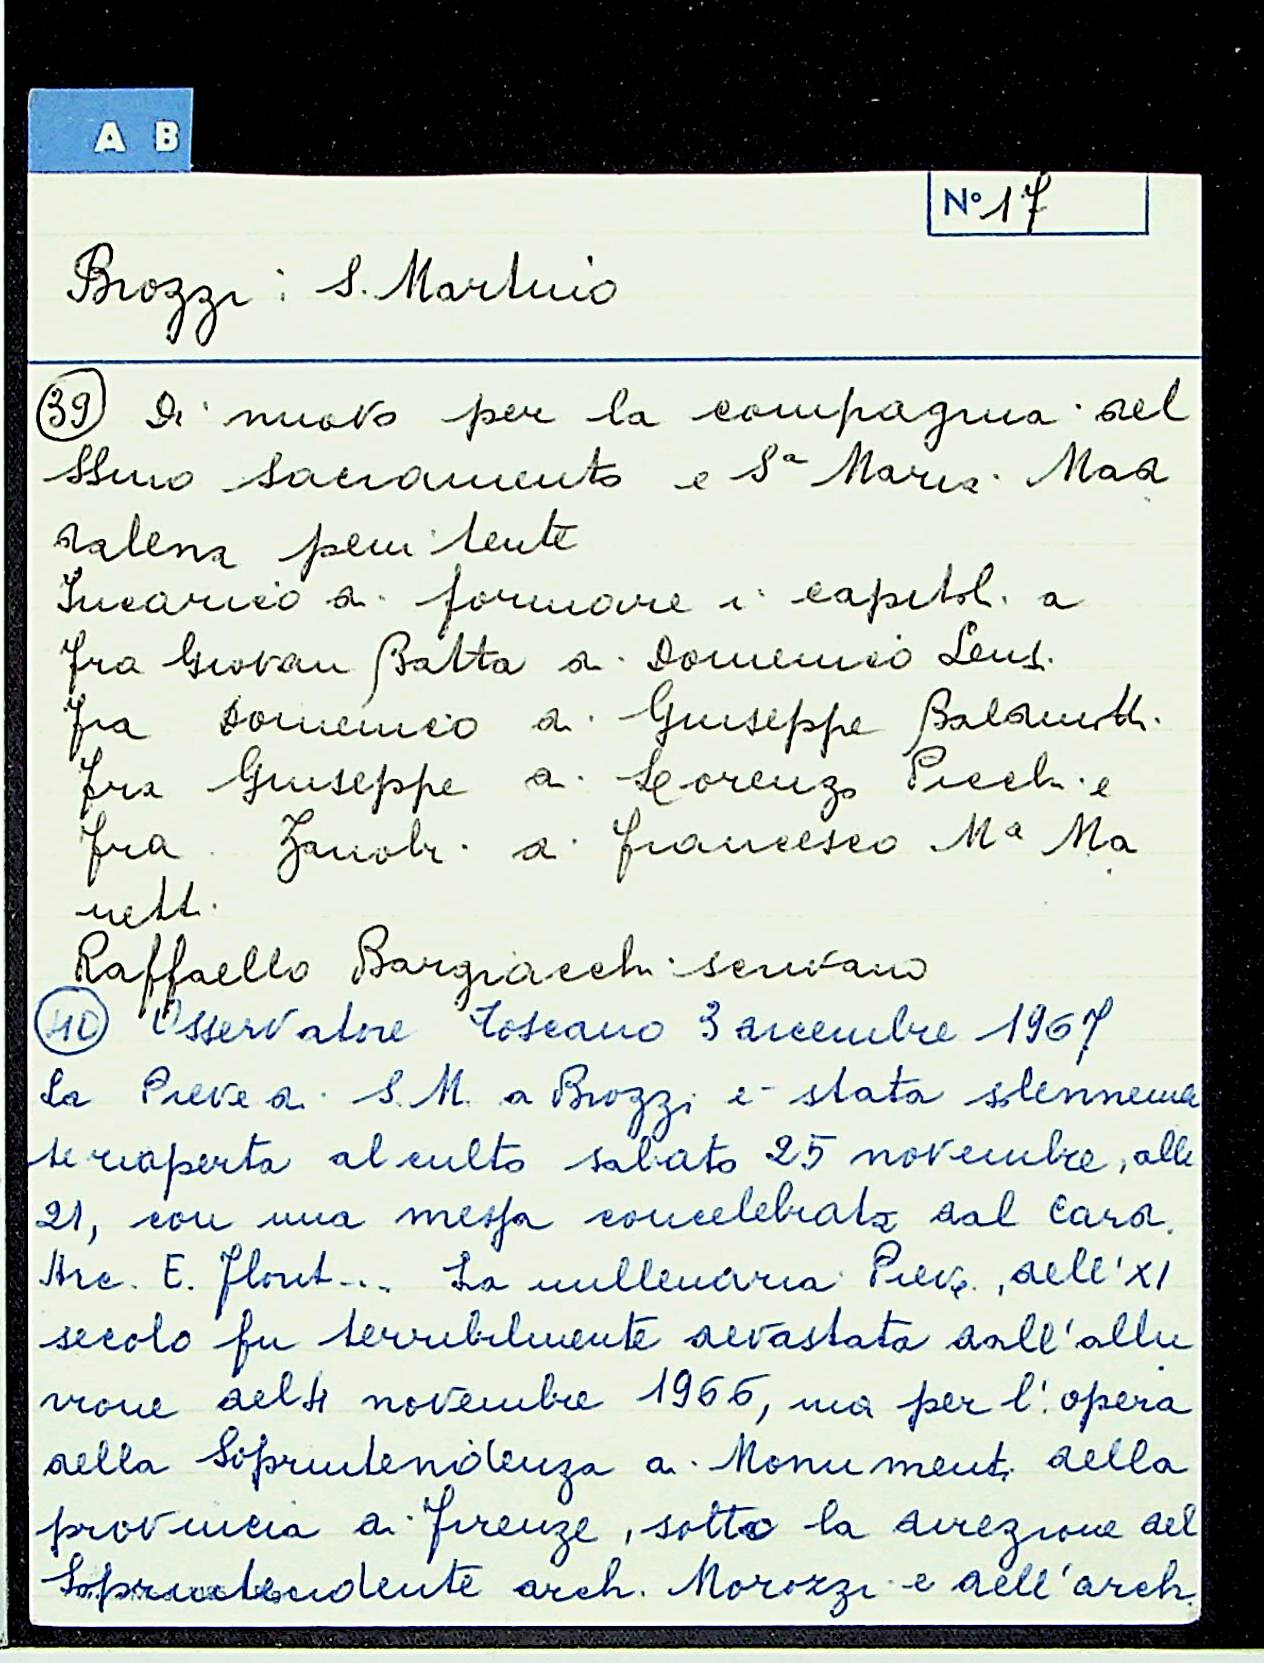 A B
N° 17
Brozzi: S. Martino
39 Di nuovo per la compagnia del
SSmo Sacramento e Sª Maria Mad
dalena penitente
Incarico di formare i capitoli a
fra Giovan Batta di Domenico Lensi
fra Domenico di Giuseppe Baldinotti
fra Giuseppe di Lorenzo Picchi e
fra Zanobi di Francesco Mª Ma
netti
Raffaello Bargiacchi scrivano
40 Osservatore Toscano 3 dicembre 1967
La Pieve di S. M. a Brozzi è stata solennemen
te riaperta al culto sabato 25 novembre, alle
21, con una messa concelebrata dal Card.
Arc. E. Florit... La millenaria Pieve, dell'XI
secolo fu terribilmente devastata dall'allu
vione del 4 novembre 1966, ma per l'opera
della Soprintendenza ai Monumenti della
provincia di Firenze, sotto la direzione del
Soprintendente arch. Morozzi e dell'arch.